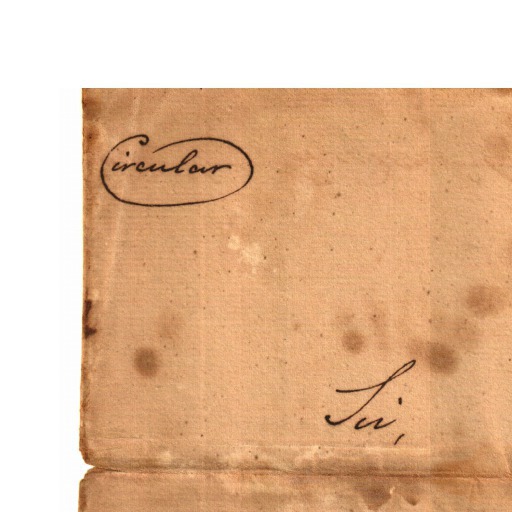 Circular
Sir,